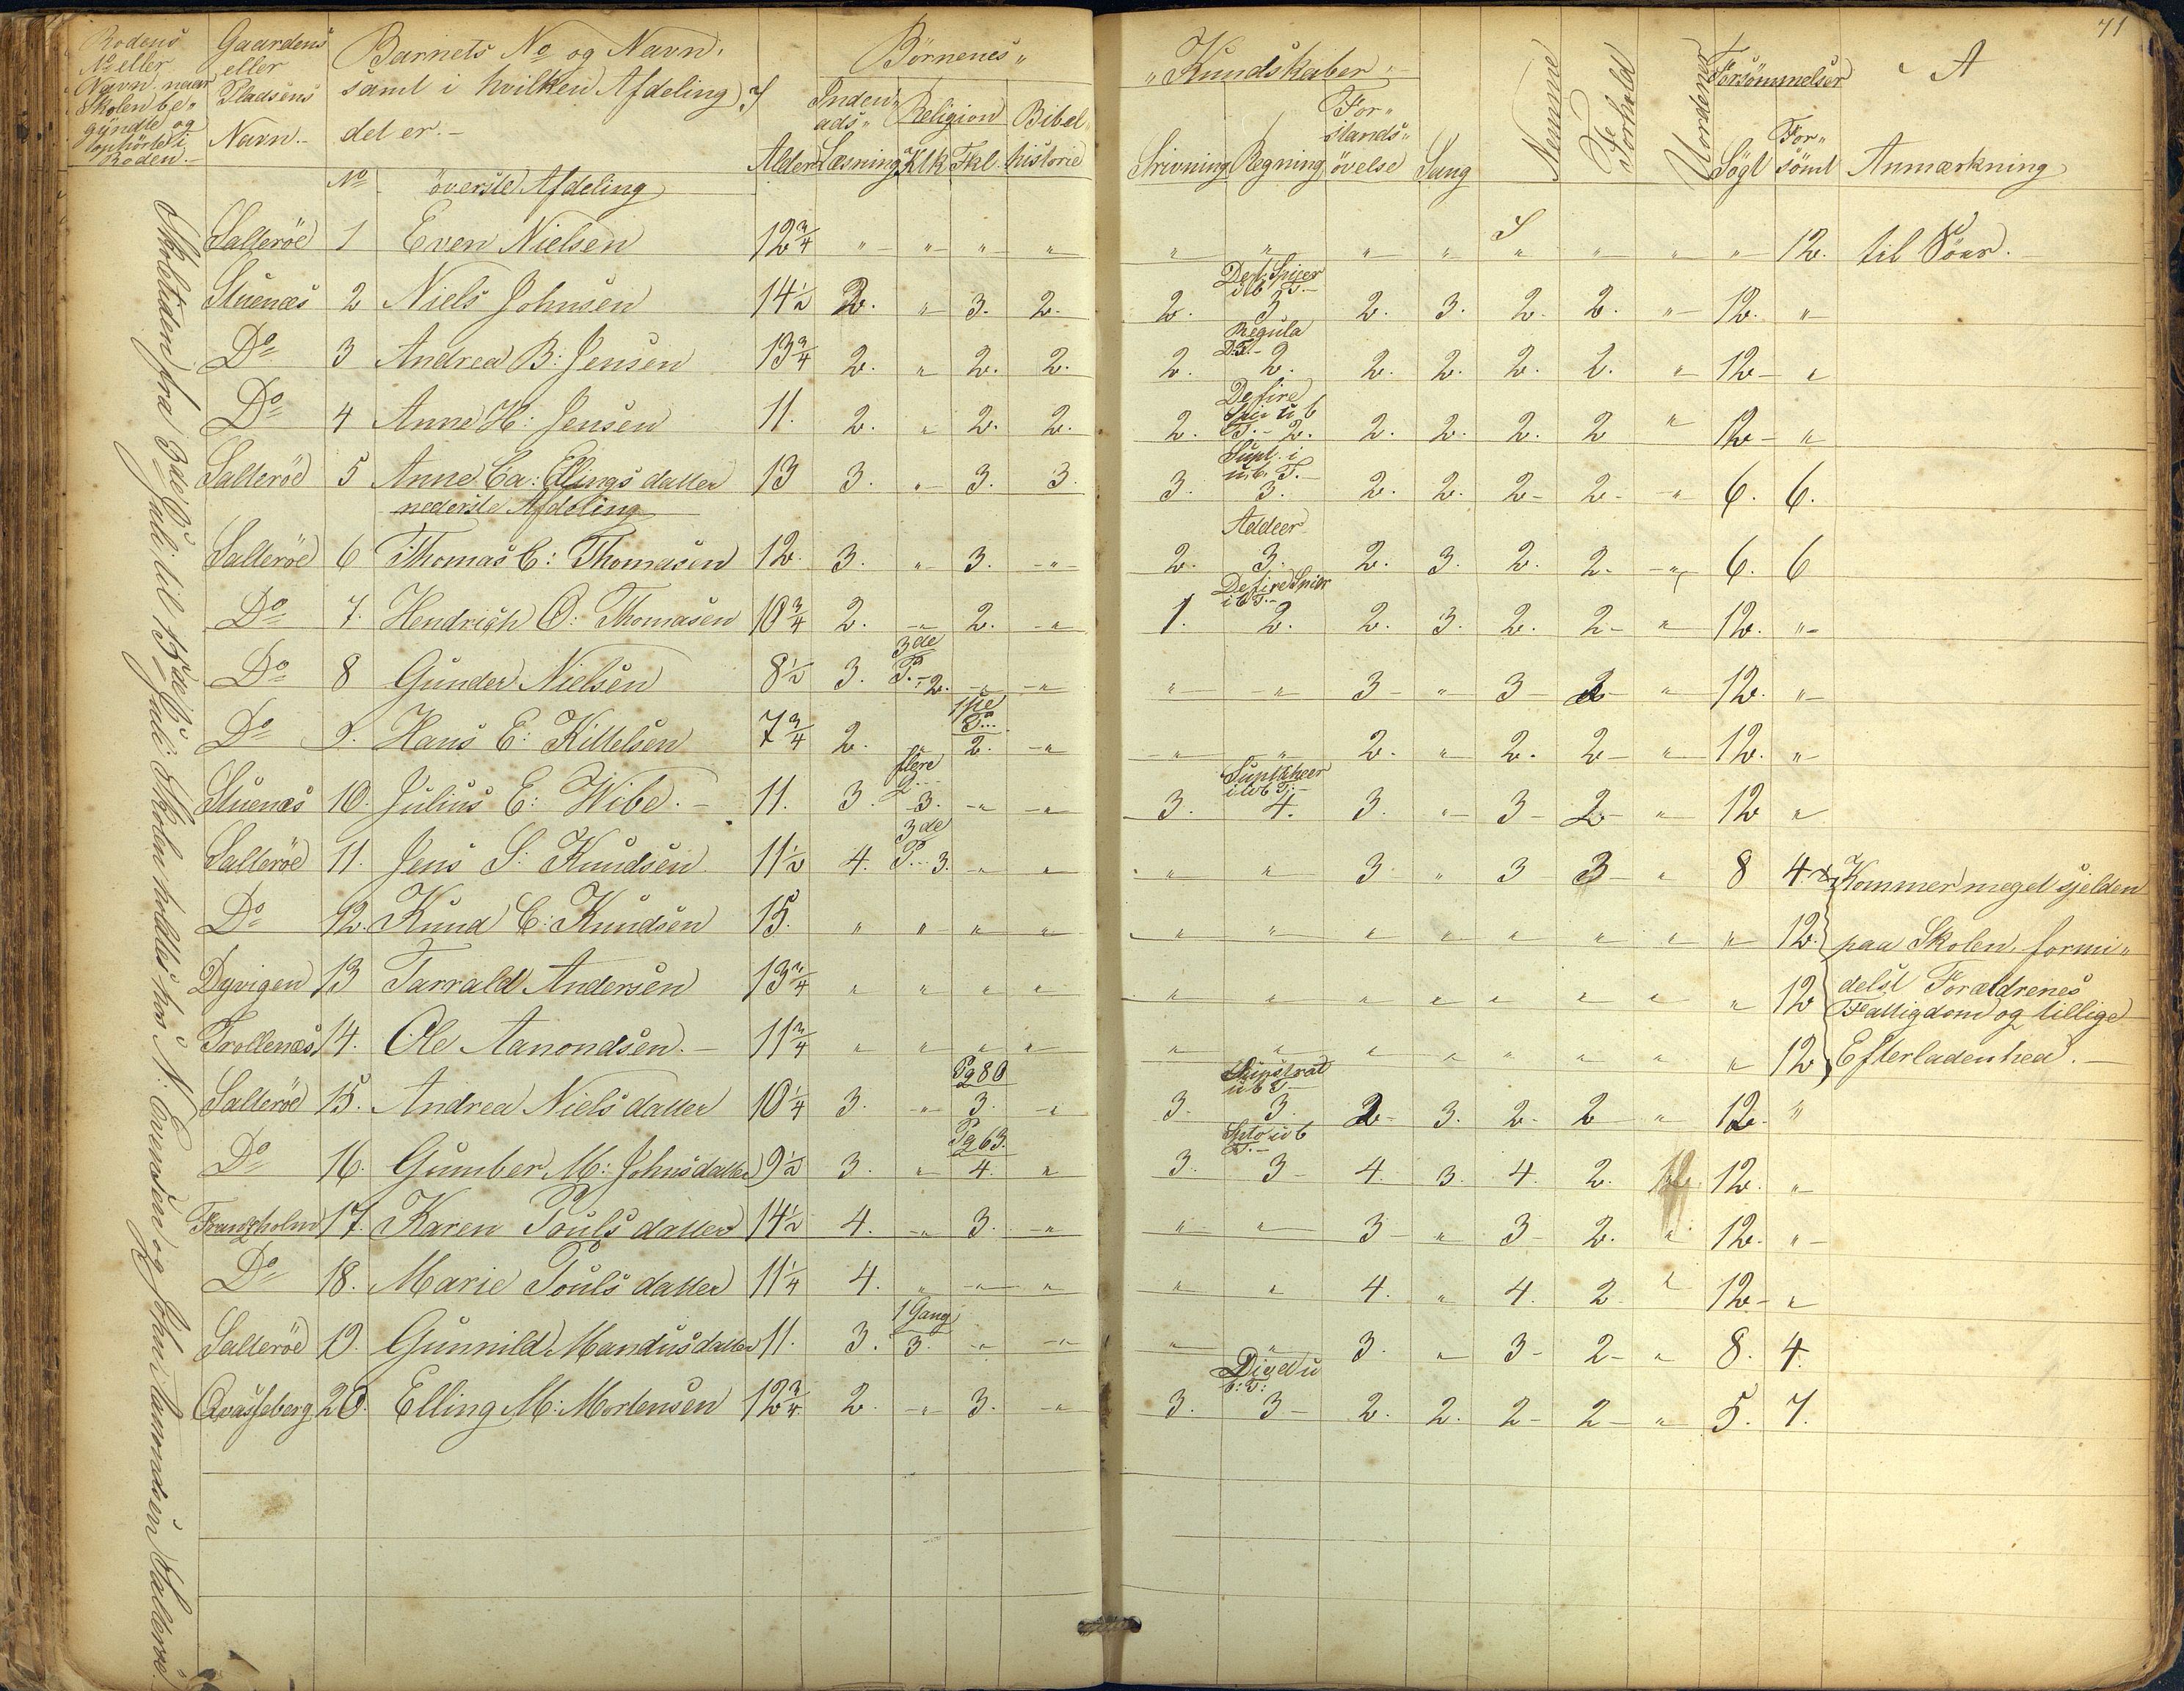 71
Rodens No eller Navn naar Skolen be- gÿndte og ophörte i Roden.-
Gaardens eller Pladsens Navn.-
Barnets No og Navn, samt i hvilken Afdeling det er.-
Börnenes„
„Kundskaber„-
Alder
Inden„ ads„ Læsning
Religion
Klk Fkl.
Bibel„ historie
Skrivning
Regning
For„ stands„ övelse
Sang
Nemme
Forhold
Uordener
Forsömmelser
Sögt
For„ sömt
Anmærkning
No överste Afdeling
Salteröe 1 Even Nielsen 12¾ „ „ „ „ „ „ „ „ „ „ „ „ 12. til Söes.-
Stuenæs 2 Niels Johnsen 14½ 2. „ 3. 2. 2. 3 2. 3. 2. 2. „ 12. „
Do 3 Andrea B: Jensen 13¾ 2. „ 2. 2. 2. Regula D.T.- 2. 2. 2. 2. 2. „ 12- „
Do 4 Anne H: Jensen 11. 2. „ 2. 2. 2. T.- 2. 2. 2. 2. 2 „ 12- „
Salteröe 5 Anne Ca: Ellings datter 13 3. „ 3. 3. 3. Supt. i u.b. T.- 3. 2. 2. 2- 2- „ 6. 6.
nederste Afdeling
Salteröe 6 Thomas C: Thomasen 12. 3. „ 3. „ 2. Addeer 3. 2. 3. 2. 2. „ 6. 6
Do 7. Hendrich O: Thomasen 10¾ 2. „ 2. „ 1. i b T.- 2. 2. 3. 2. 2- „ 12. „
Do 8 Gunder Nielsen 8½ 3. 3de P.- 2. „ „ „ „ 3- „ 3- 2- „ 12. „
Do 9. Hans E: Kittelsen 7¾ 2. „ 1ste P.. 2. „ „ „ 2. „ 2. 2- „ 12. „
Stuenæs 10. Julius E: Wibe.- 11. 3. flere 3. „ „ 3. 4. 3. „ 3- 2- „ 12 „
Salteröe 11. Jens S: Knudsen 11½ 4. 3de P.. 3. „ „ „ „ 3 „ 3 3- „ 8 4. Kommer meget sjelden
Do 12. Knud C: Knudsen 15. „ „ „ „ „ „ „ „ „ „ „ „ 12. paa Skolen formi„
Dyvigen 13 Tarrald Andersen 13¾ „ „ „ „ „ „ „ „ „ „ „ „ 12 delst Forældrenes
Fattigdom og tillige
Trollenæs 14. Ole Aanondsen.- 11¾ „ „ „ „ „ „ „ „ „ „ „ „ 12 Efterladenhed.-
Salteröe 15. Andrea Niels datter 10¼ 3. „ Pg 80 3. „ 3. u b T- 3. 2- 3. 2- 2 „ 12. „
Do 16. Gumber M: Johns datter 9½ 3. „ Pg 63. 4. „ 3. 3- 4. 3. 4. 2. 12. „
17. Karen Pouls datter 14½ 4. „ 3. „ „ „ 3- „ 3- 2. „ 12. „
Do 18. Marie Pouls datter 11¼ 4. „ „ „ „ „ 4. „ 4. 2 „ 12- „
Salteröe 19. Gunnild Mandusdatter 11. 3. 1 Gang 3. „ „ „ „ 3. „ 3- 2- „ 8. 4.
Qvasseberg 20. Elling M: Mortensen 12¾ 2. „ 3. „ 3. 3- 2. 2. 2- 2- „ 5. 7.
Skoletiden fra 3de Juli til 15de Juli: Skolen holdtes hos N: Evensen og John Aanondsen Salteröe.